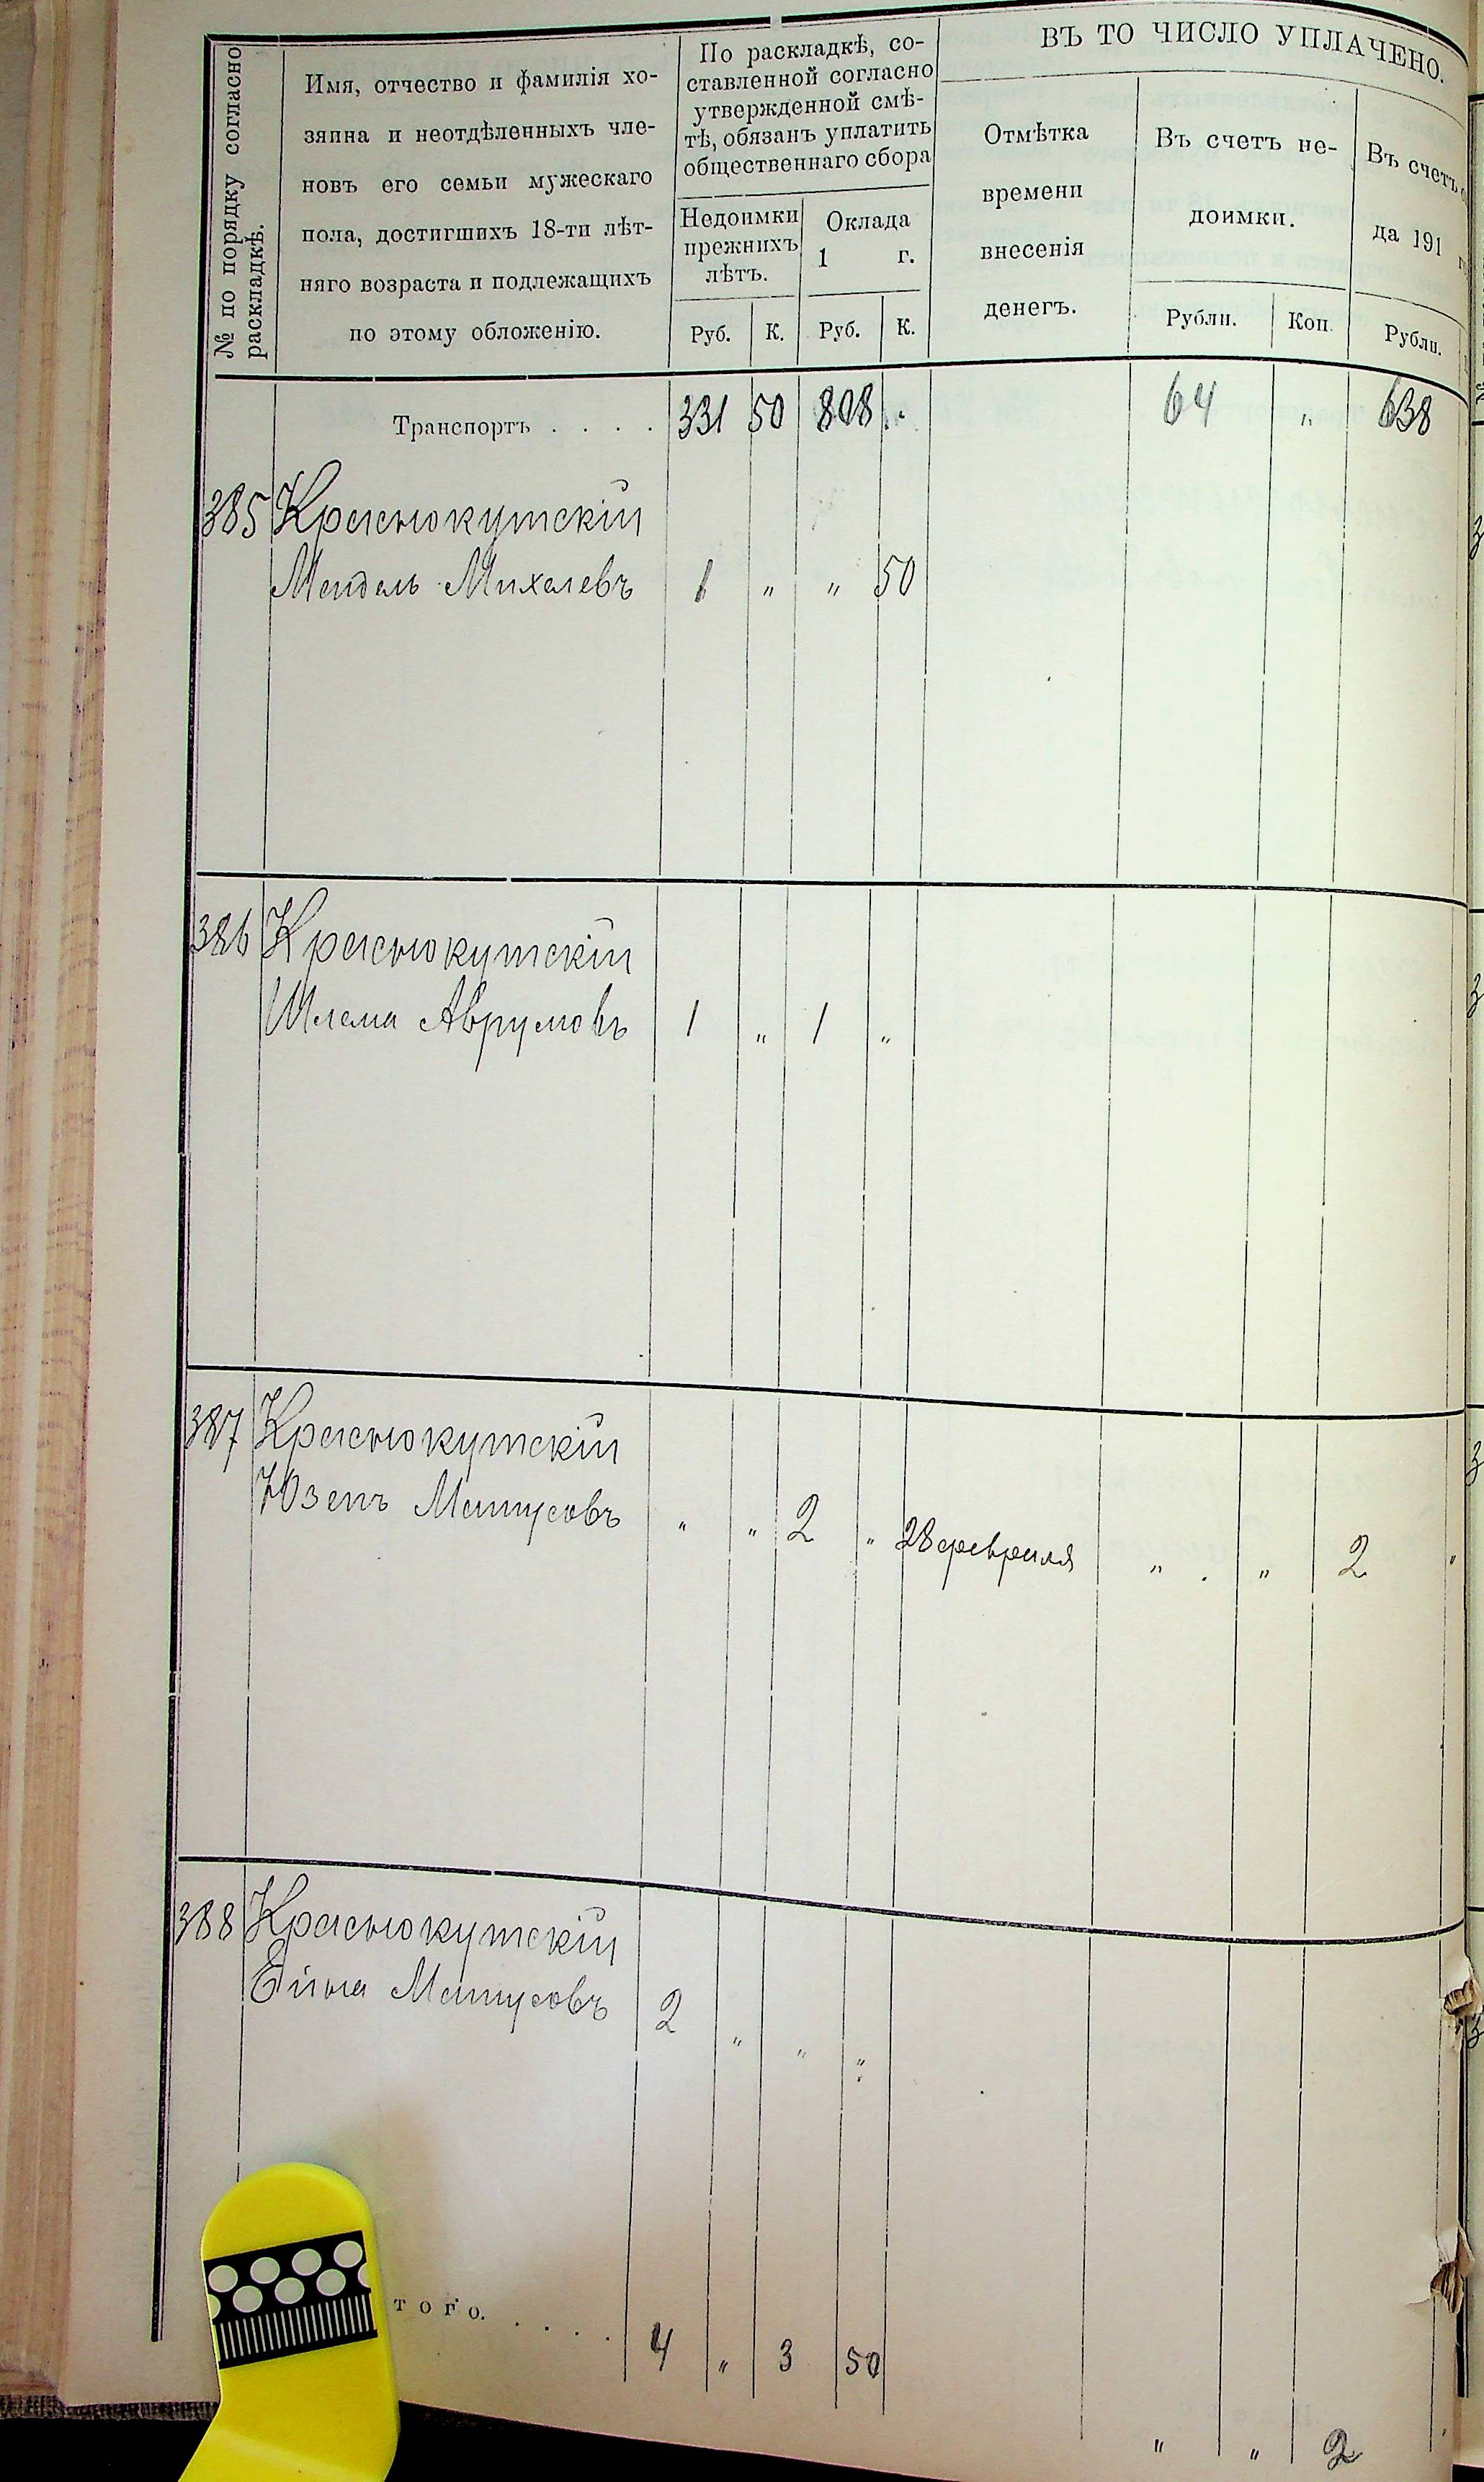 № по порядку согласно раскладкѣ.
Имя, отчество и фамилія хо-
зяина и неотдѣленныхъ чле-
новъ его семьи мужескаго
пола, достигшихъ 18-ти лѣт-
няго возраста и подлежащихъ
по этому обложенію.
По раскладкѣ, со-
ставленной согласно
утвержденной смѣ-
тѣ, обязанъ уплатить
общественнаго сбора
Недоимки
прежнихъ
лѣтъ.
Оклада
1 г.
Руб. К. Руб. К.
ВЪ ТО ЧИСЛО УПЛАЧЕНО.
Отмѣтка
времени
внесенія
денегъ.
Въ счетъ не-
доимки.
Рубли. Коп.
Въ счетъ
да 191 г
Рубли.
Транспортъ . . . . 331 50 808 „ 64 „ 638
385 Краснокутскій
Мендель Михелевъ 1 „ „ 50
386 Краснокутскій
Шлема Аврумовъ 1 „ 1 „
387 Краснокутскій
Юзепъ Матусовъ „ „ 2 „ 28 февраля „ „ 2 „
388 Краснокутскій
Ейна Матусовъ 2 „ „ „
того. . . . . 4 „ 3 50 „ „ 2